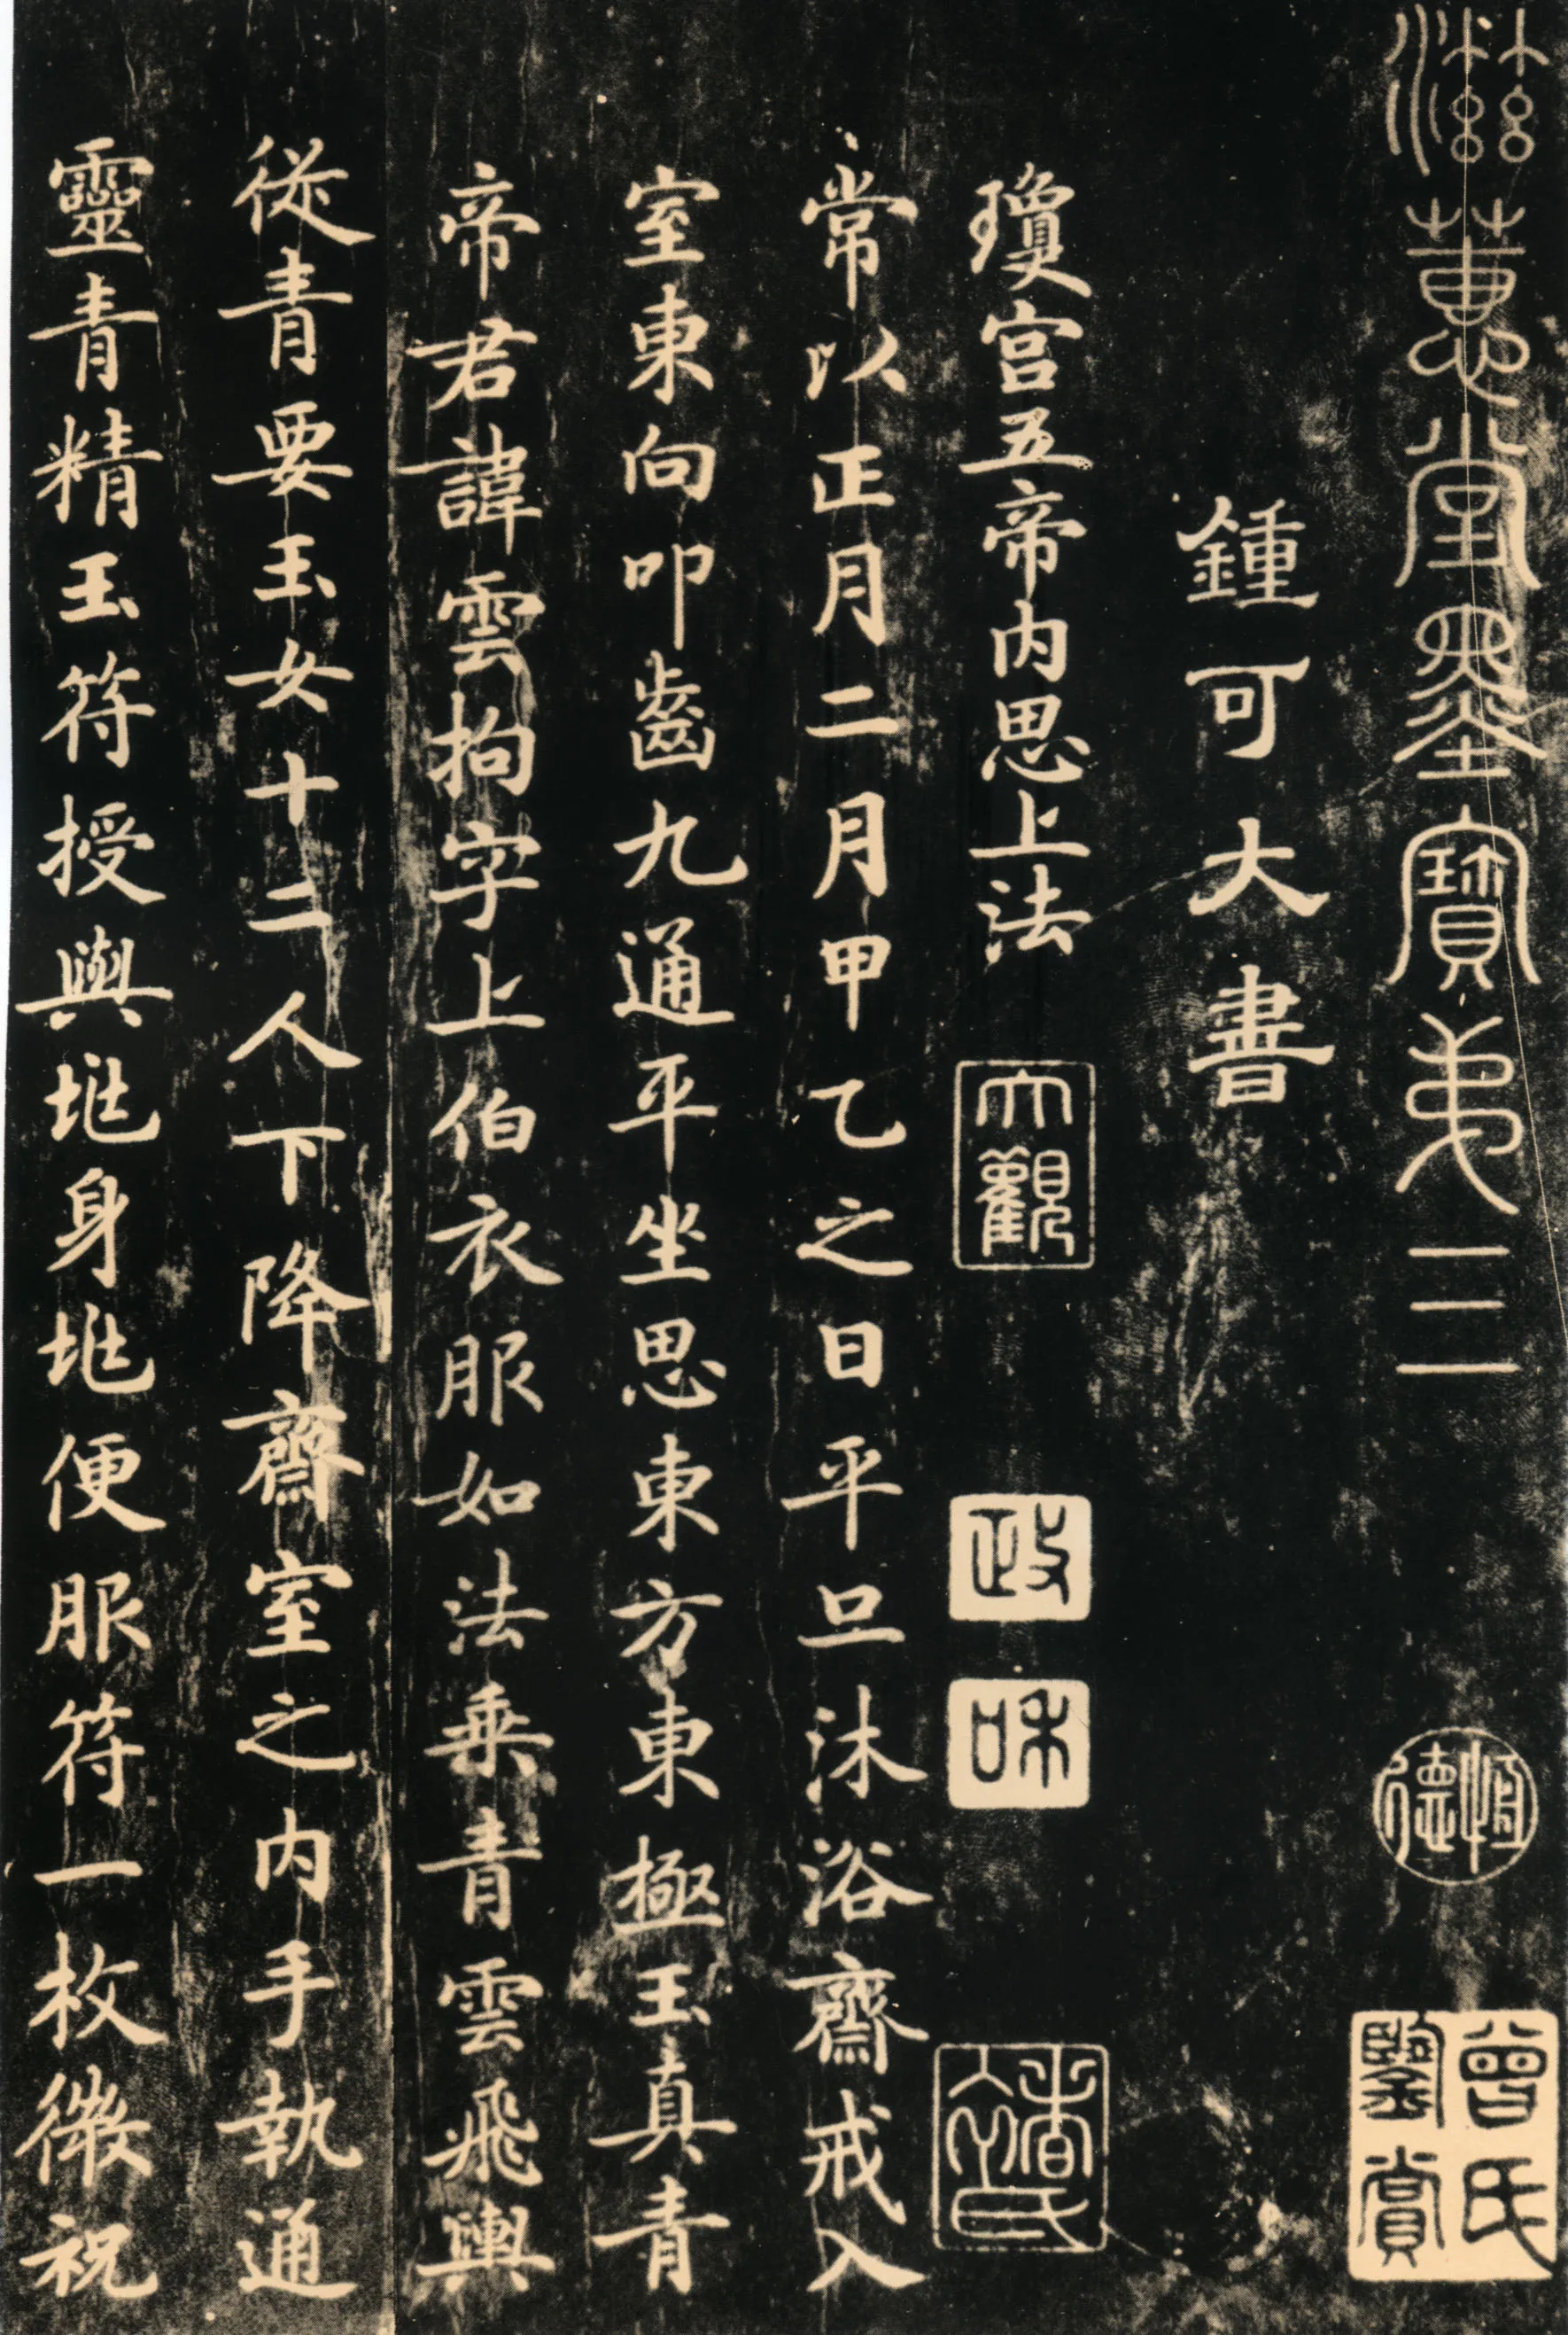 滋蕙堂墨寶弟三
恒德
曾氏鑒賞
鍾可大書
瓊宮五帝内思上法
大觀
政
和
常以正月二月甲乙之日平旦沐浴齋戒入
室東向叩齒九通平坐思東方東極玉真青
帝君諱雲拘字上伯衣服如法乗青雲飛輿
從青要玉女十二人下降齋室之内手執通
靈青精玉符授與兆身兆便服符一枚微祝